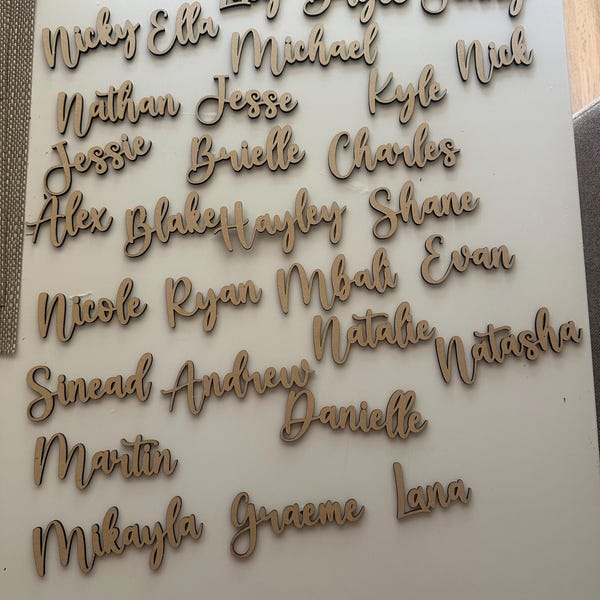 Nicky Ella
Michael Nick
Nathan Jesse Kyle
Jessie Brielle Charles
Alex Blake Hayley Shane
Nicole Ryan Mbali Evan
Natalie Natasha
Sinead Andrew
Danielle
Martin
Mikayla Graeme Lana